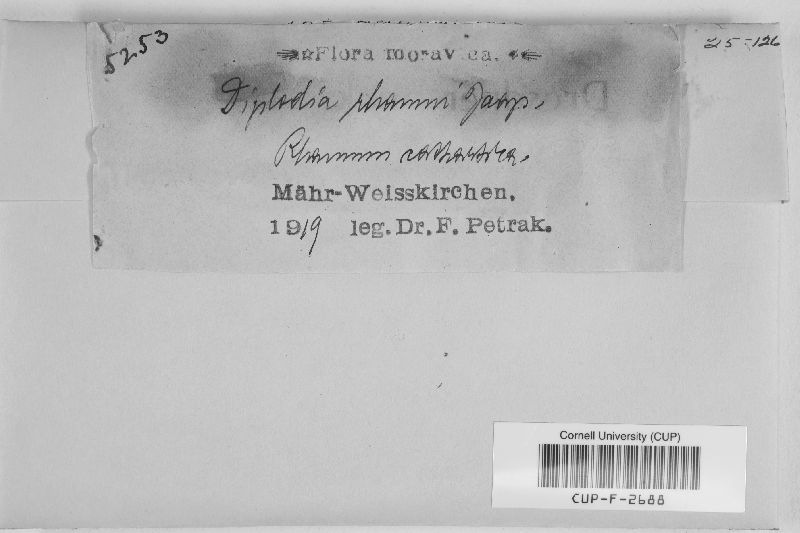 5253
Flora moravica.
25-126
Diplodia rhamni Jaap.
Rhamnus cathartica.
Mähr-Weisskirchen.
1919 leg. Dr. F. Petrak.
Cornell University (CUP)
CUP-F-2688